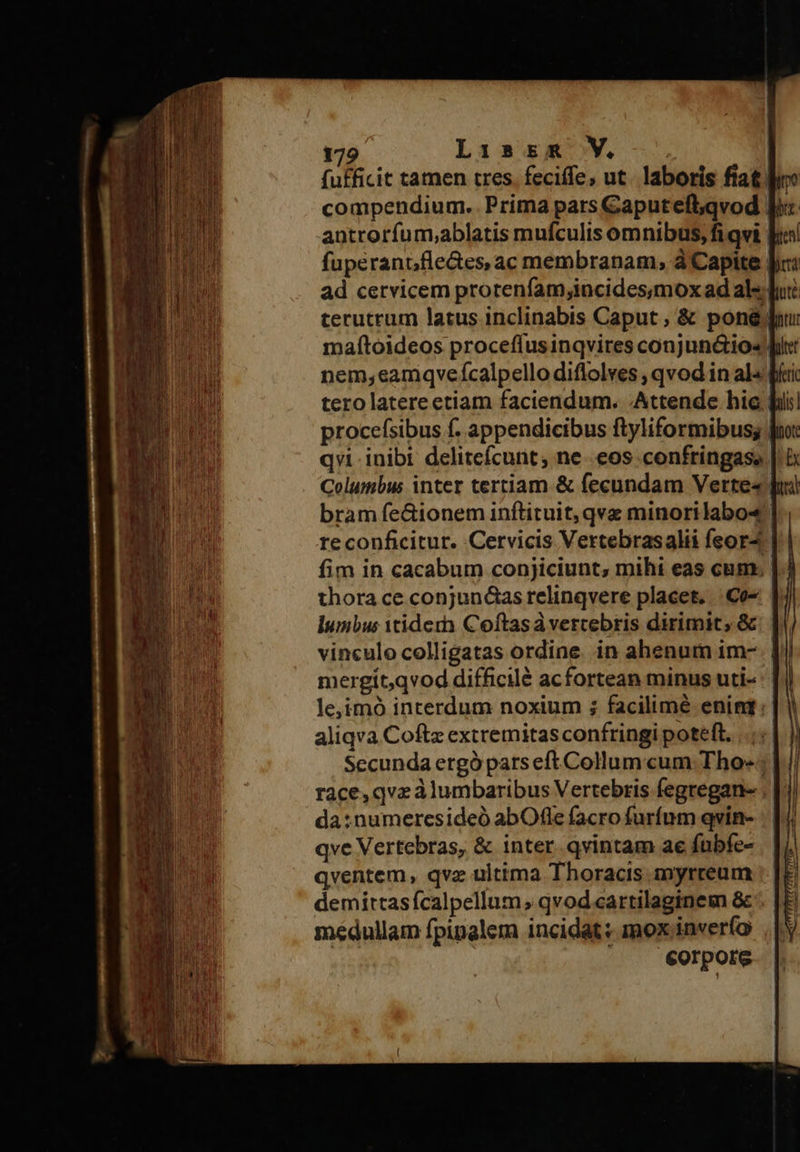 179 LIBER V.
ſufficit tamen tres feciſſe, ut laboris fiat
compendium. Prima pars Caput eſt, qvod
antrorſum, ablatis muſculis omnibus, ſi qvi
ſuperant, flectes, ac membranam, à Capite
ad cervicem protenſam, incides; mox ad al-
terutrum latus inclinabis Caput, & poné
maſtoideos proceſſus inqvires conjunctio-
nem, eamqve ſcalpello diſſolves, qvod in al-
tero latere etiam faciendum. Attende hic
proceſsibus ſ. appendicibus ſtyliformibus,
qvi inibi deliteſcunt, ne eos confringas.
Columbus inter tertiam & ſecundam Verte-
bram ſectionem inſtituit, qvæ minori labo-
re conficitur. Cervicis Vertebras alii ſeor-
ſim in cacabum conjiciunt, mihi eas cum
thorace conjunctas relinqvere placet. Co-
lumbus itidem Coſtas à vertebris dirimit, &
vinculo colligatas ordine in ahenum im-
mergit, qvod difficilè ac fortean minus uti-
le, imò interdum noxium; facilimè enim
aliqva Coſtæ extremitas confringi poteſt.
Secunda ergò pars eſt Collum cum Tho-
race, qvæ à lumbaribus Vertebris ſegregan-
da: numeres ideò ab Oſſe ſacro ſurſum qvin-
qve Vertebras, & inter qvintam ac ſubſe-
qventem, qvæ ultima Thoracis myrteum
demittas ſcalpellum, qvod cartilaginem &
medullam ſpinalem incidat: mox inverſo
corpore